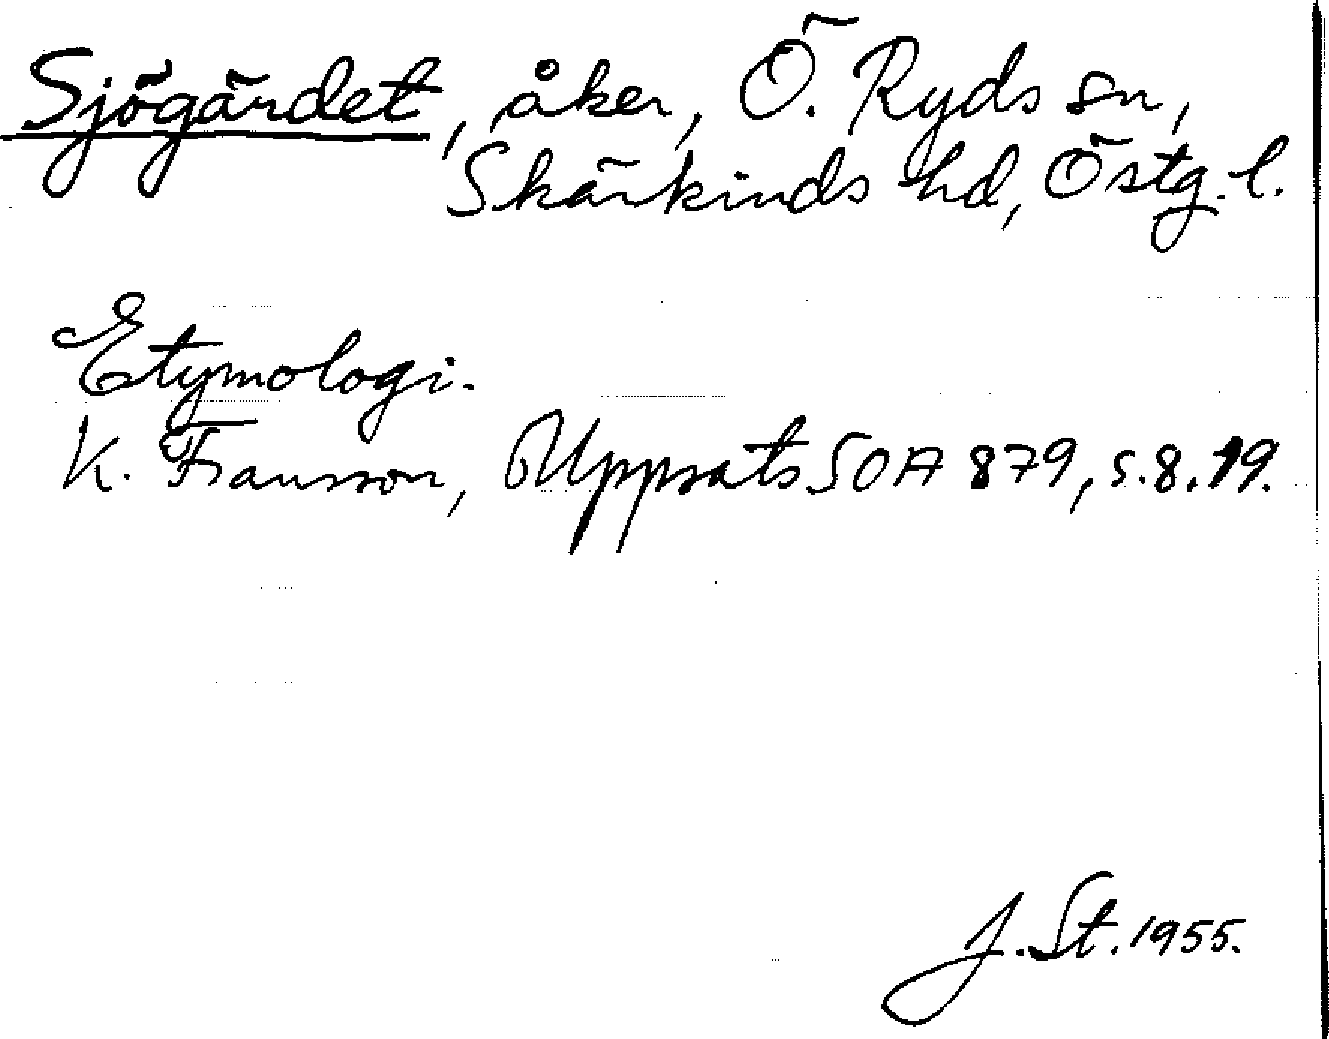 Sjögärdet, åker, Ö. Ryds sn,
Skärkinds hd, Östg. l.
Etymologi.
K. Fransson, Uppsats SOA 879, s. 8, 19.
J. St. 1955.